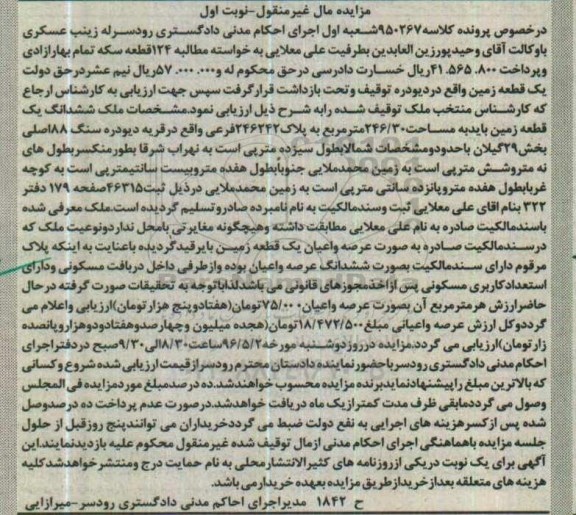 مزایده مال غیرمنقول-نوبت اول
درخصوص پرونده کلاسه۹۵۰۲۶۷شعبه اول اجرای احکام مدنی دادگستری رودسرله زینب عسکری
باوکالت آقای وحیدپورزین العابدین بطرفیت علی معلایی به خواسته مطالبه ۱۲۴قطعه سکه تمام بهارازادی
وپرداخت ۴۱.۵۶۵.۸۰۰ریال خسارت دادرسی درحق محکوم له و۵۷.۰۰۰.۰۰۰ریال نیم عشردرحق دولت
یک قطعه زمین واقع دردیودره توقیف وتحت بازداشت قرارگرفت سپس جهت ارزیابی به کارشناس ارجاع
که کارشناس منتخب ملک توقیف شده رابه شرح ذیل ارزیابی نمود.مشخصات ملک ششدانگ یک
قطعه زمین بایدبه مساحت۲۴۶/۳۰مترمربع به پلاک۲۴۶۲۴۲فرعی واقع درقریه دیودره سنگ ۸۸اصلی
بخش۲۹گیلان باحدودومشخصات شمالابطول سیزده مترپی است به نهراب شرقا بطورمنکسربطول های
نه متروشش مترپی است به زمین محمدملایی جنوبابطول هفده متروبیست سانتیمترپی است به کوچه
غربابطول هفده متروپانزده سانتی مترپی است به زمین محمدملایی درذیل ثبت۴۶۳۱۵صفحه ۱۷۹ دفتر
۳۲۲ بنام اقای علی معلایی ثبت وسندمالکیت به نام نامبرده صادروتسلیم گردیده است.ملک معرفی شده
باسندمالکیت صادره به نام علی معلایی مطابقت داشته وهیچگونه مغایرتی بامحل نداردونوعیت ملک که
درسندمالکیت صادره به صورت عرصه واعیان یک قطعه زمین بایرقیدگردیده باعنایت به اینکه پلاک
مرقوم دارای سندمالکیت بصورت ششدانگ عرصه واعیان بوده وازطرفی داخل دریافت مسکونی ودارای
استعدادکاربری مسکونی پس ازاخذمجوزهای قانونی می باشدلذاباتوجه به تحقیقات صورت گرفته درحال
حاضرارزش هرمترمربع آن بصورت عرصه واعیان۷۵/۰۰۰تومان(هفتادوپنج هزارتومان)ارزیابی واعلام می
گرددوکل ارزش عرصه واعیانی مبلغ۱۸/۴۷۲/۵۰۰تومان(هجده میلیون وچهارصدوهفتادودوهزاروپانصده
زارتومان)ارزیابی می گردد.مزایده درروزدوشنبه مورخه۹۶/۵/۲ساعت۸/۳۰الی۹/۳۰صبح دردفتراجرای
احکام مدنی دادگستری رودسرباحضورنماینده دادستان محترم رودسرازقیمت ارزیابی شده شروع وکسانی
که بالاترین مبلغ راپیشنهادنمایدبرنده مزایده محسوب خواهندشد.ده درصدمبلغ موردمزایده فی المجلس
وصول می گرددمابقی ظرف مدت کمترازیک ماه دریافت خواهدشد.درصورت عدم پرداخت ده درصدوصل
شده پس ازکسرهزینه های اجرایی به نفع دولت ضبط می گرددخریداران می توانندپنج روزقبل از حلول
جلسه مزایده باهماهنگی اجرای احکام مدنی ازمال توقیف شده غیرمنقول محکوم علیه بازدیدنمایند.این
آگهی برای یک نوبت دریکی ازروزنامه های کثیرالانتشارمحلی به نام حمایت درج ومنتشرخواهدشدکلیه
هزینه های متعلقه بعدازخریدازطریق مزایده بعهده خریدارمی باشد.
ح ۱۸۴۲ مدیراجرای احاکم مدنی دادگستری رودسر-میرزایی